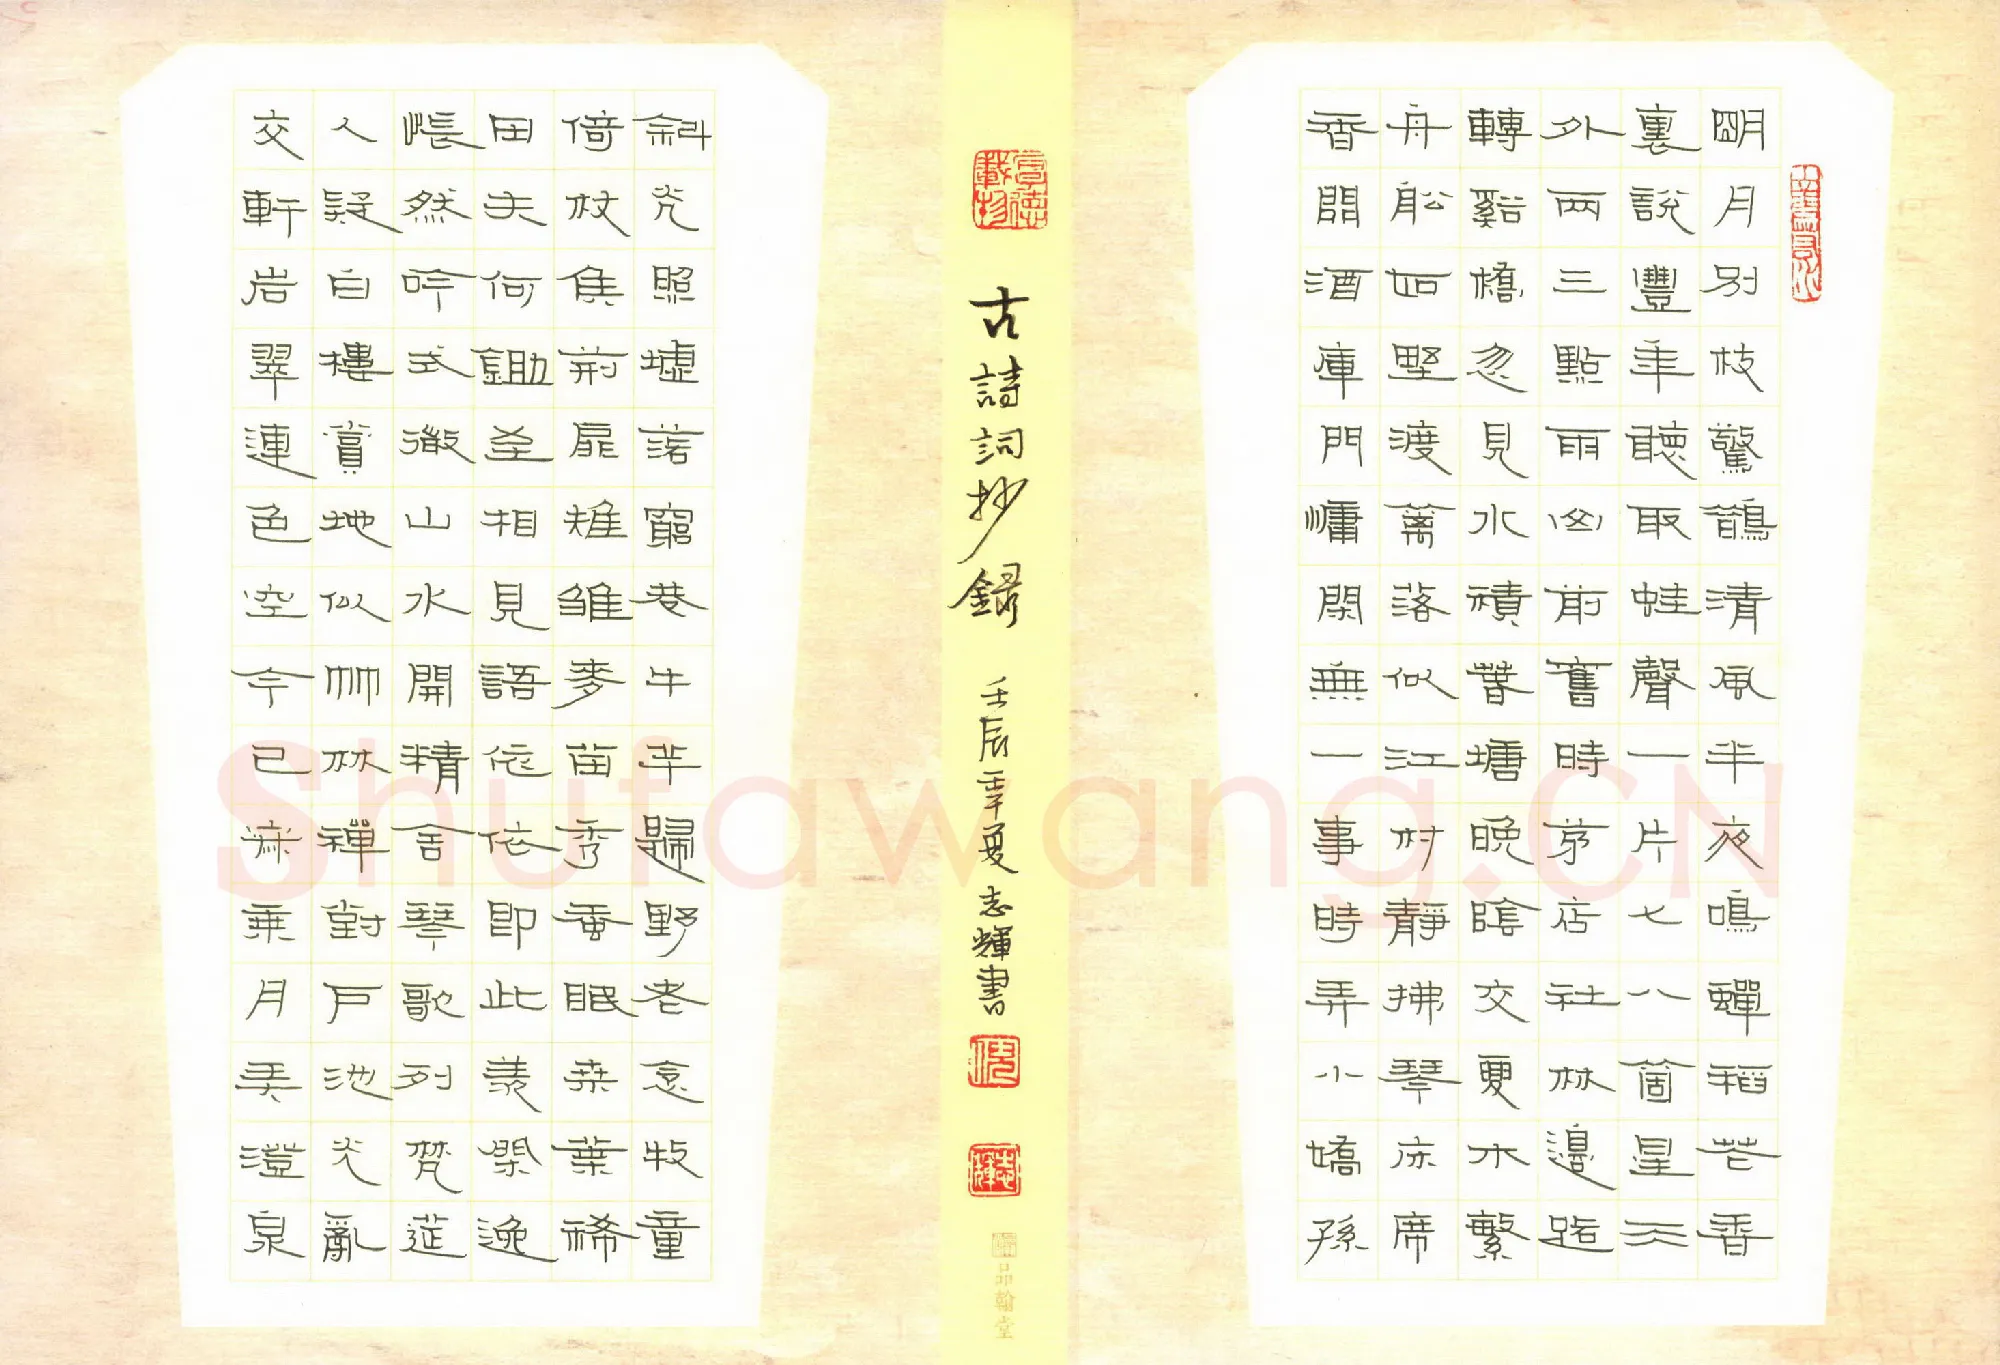 明月別枝驚鵲清風半夜鳴蟬稻花香
裏說豐年聽取蛙聲一片七八箇星天
外兩三點雨山前舊時茅店社林邊路
轉谿橋忽見水積春塘晚陰交夏木繁
舟船如野渡籬落似江村靜拂琴床席
香開酒庫門慵閑無一事時弄小嬌孫
古詩詞抄錄
壬辰年夏志輝書
厚德載物
志輝
品翰堂
斜光照墟落窮巷牛羊歸野老念牧童
倚杖候荊扉雉雛麥苗秀蚕眠桑葉稀
田夫何鋤至相見語依依即此羨閑逸
悵然吟式微山水開精舍琴歌列梵筵
人疑白樓賞地似竹林禪對戶池光亂
交軒岩翠連色空今已寂乘月弄澄泉
Shufawang.CN